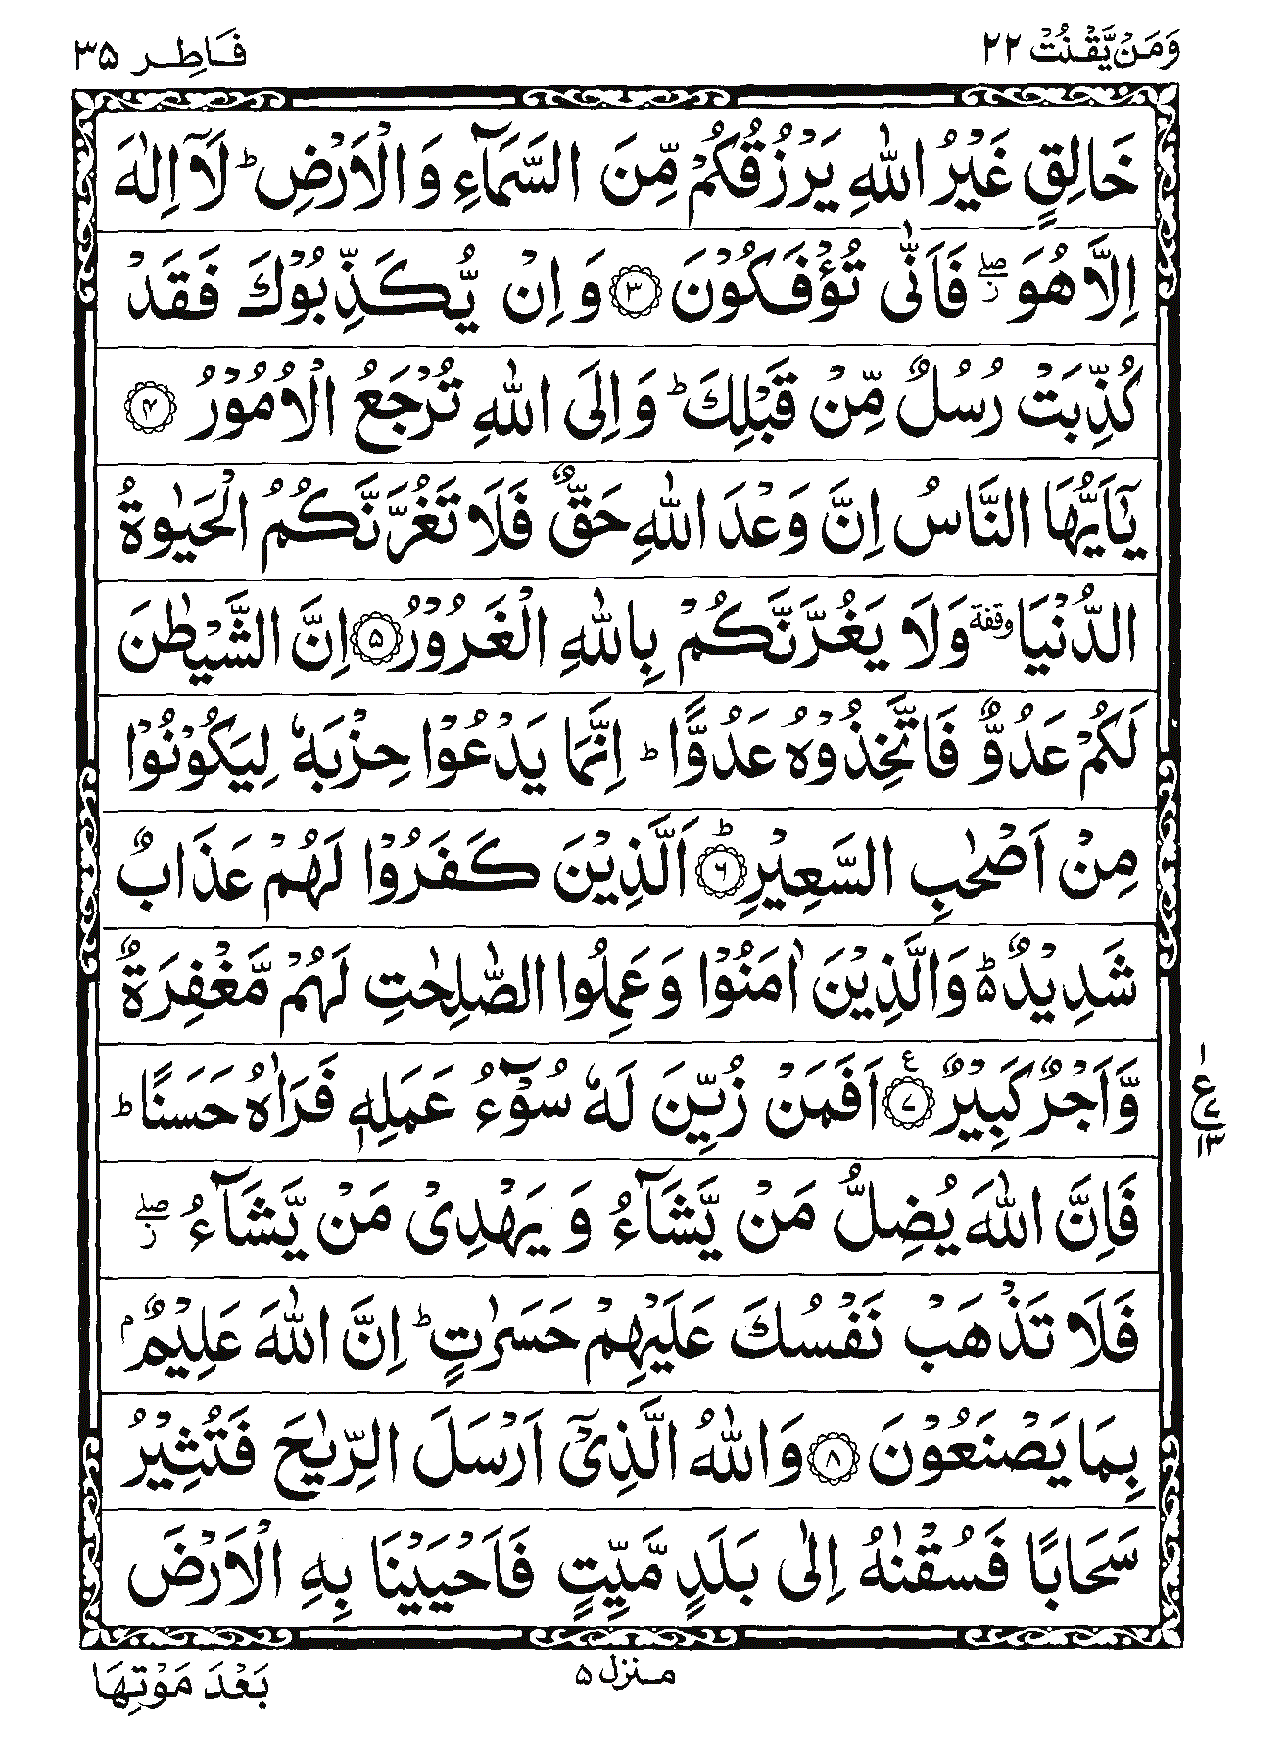 وَمَنْ يَّقْنُتْ ٢٢
فَاطِر ٣٥
خَالِقٍ غَيْرُ اللّٰهِ يَرْزُقُكُمْ مِّنَ السَّمَآءِ وَالْاَرْضِ ؕ لَاۤ اِلٰهَ
اِلَّا هُوَ ۖ٘ فَاَنّٰى تُؤْفَكُوْنَ ﴿٣﴾ وَاِنْ يُّكَذِّبُوْكَ فَقَدْ
كُذِّبَتْ رُسُلٌ مِّنْ قَبْلِكَ ؕ وَاِلَى اللّٰهِ تُرْجَعُ الْاُمُوْرُ ﴿۴﴾
يٰۤاَيُّهَا النَّاسُ اِنَّ وَعْدَ اللّٰهِ حَقٌّ فَلَا تَغُرَّنَّكُمُ الْحَيٰوةُ
الدُّنْيَا وقفة وَلَا يَغُرَّنَّكُمْ بِاللّٰهِ الْغَرُوْرُ ﴿۵﴾ اِنَّ الشَّيْطٰنَ
لَكُمْ عَدُوٌّ فَاتَّخِذُوْهُ عَدُوًّا ؕ اِنَّمَا يَدْعُوْا حِزْبَهٗ لِيَكُوْنُوْا
مِنْ اَصْحٰبِ السَّعِيْرِ ﴿۶﴾ؕ اَلَّذِيْنَ كَفَرُوْا لَهُمْ عَذَابٌ
شَدِيْدٌ ۬ؕ وَالَّذِيْنَ اٰمَنُوْا وَعَمِلُوا الصّٰلِحٰتِ لَهُمْ مَّغْفِرَةٌ
وَّاَجْرٌ كَبِيْرٌ ﴿٧﴾ع اَفَمَنْ زُيِّنَ لَهٗ سُوْٓءُ عَمَلِهٖ فَرَاٰهُ حَسَنًا ؕ
١
ع
٧
١٣
فَاِنَّ اللّٰهَ يُضِلُّ مَنْ يَّشَآءُ وَ يَهْدِىْ مَنْ يَّشَآءُ ۖ٘
فَلَا تَذْهَبْ نَفْسُكَ عَلَيْهِمْ حَسَرٰتٍ ؕ اِنَّ اللّٰهَ عَلِيْمٌۢ
بِمَا يَصْنَعُوْنَ ﴿٨﴾ وَاللّٰهُ الَّذِىْۤ اَرْسَلَ الرِّيٰحَ فَتُثِيْرُ
سَحَابًا فَسُقْنٰهُ اِلٰى بَلَدٍ مَّيِّتٍ فَاَحْيَيْنَا بِهِ الْاَرْضَ
منزل ۵
بَعْدَ مَوْتِهَا